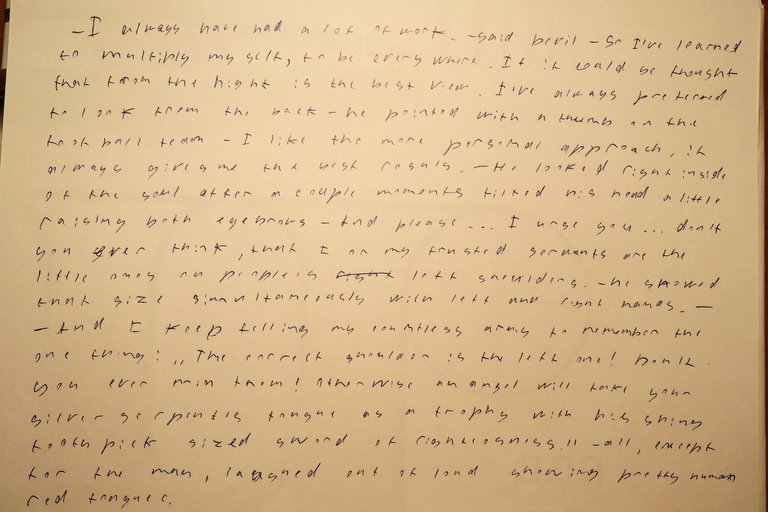 - I always have had a lot of work. - said Devil - So I've learned
to multiply my self, to be everywhere. If it could be thought
that from the hight is the best view. I've always preferred
to look from the back - he pointed with a thumb on the
foot ball team - I like the more personal approach, it
always gives me the best results. - He looked right inside
of the soul after a couple moments tilted his head a little
raising both eyebrows - And please... I urge you... don't
you ever think, that I or my trusted servants are the
little ones on people's right left shoulders. - he showed
that size simultaneously with left and right hands. -
- And I keep telling my countless army to remember the
one thing: ,, The correct shoulder is the left one! Don't
you ever them! Otherwise an angel will take your
silver serpentis tongue as a trophy with his shiny
tooth pick sized sword of righteosness." - all, except
for the man, laughed out of loud showing pretty human
red tongues.